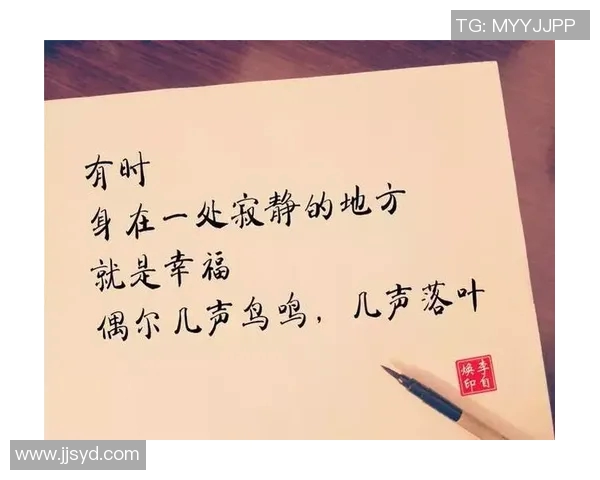 TG: MYYJJPP
有时
身在一处寂静的地方
就是幸福
偶尔几声鸟鸣，几声落叶
李自
焕印
www.jjsyd.com